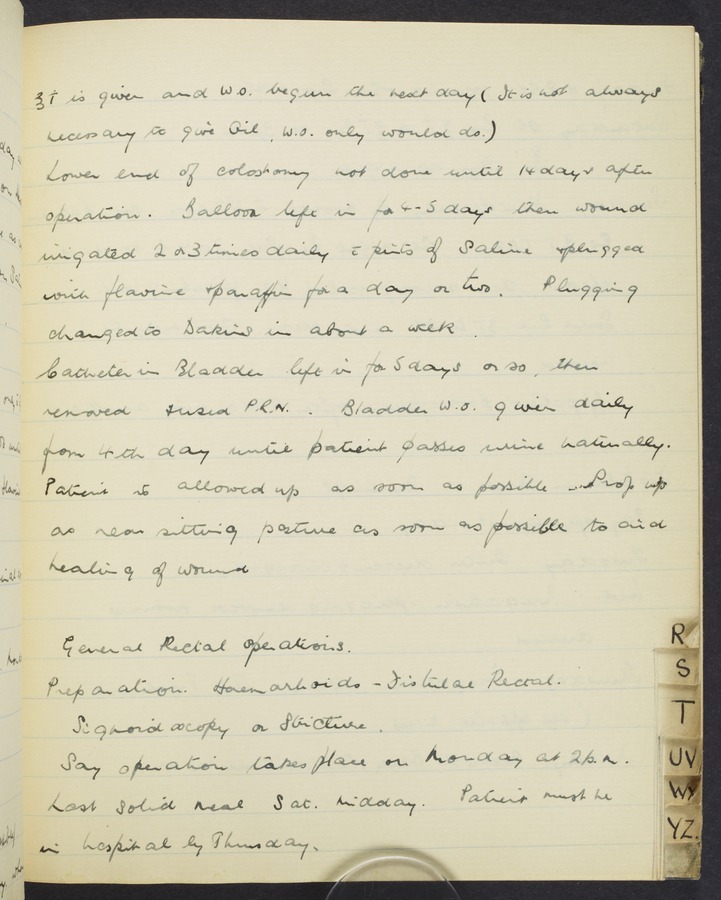 ℥i is given and W.O. begun the next day ( It is not always
necessary to give Oil, W.O. only would do.)
Lower end of colostomy not done until 14 days after
operation. Balloon left in for 4-5 days then wound
irrigated 2 or 3 times daily c̄ pints of Saline & plugged
with flavine & paraffin for a day or two. Plugging
changed to Dakins in about a week.
Catheter in Bladder left in for 5 days or so, then
removed & used P.R.N. . Bladder W.O. given daily
from 4th day until patient passes urine naturally.
Patient is allowed up as soon as possible. Prop up
as near sitting posture as soon as possible to aid
healing of wound
General Rectal operations.
Preparation. Haemorhoids - Fistulae Rectal.
Sigmoidoscopy or Stricture.
Say operation takes place on Monday at 2 p.m.
Last solid meal Sat. midday. Patient must be
in hospital by Thursday.
R
S
T
UV
WX
YZ.